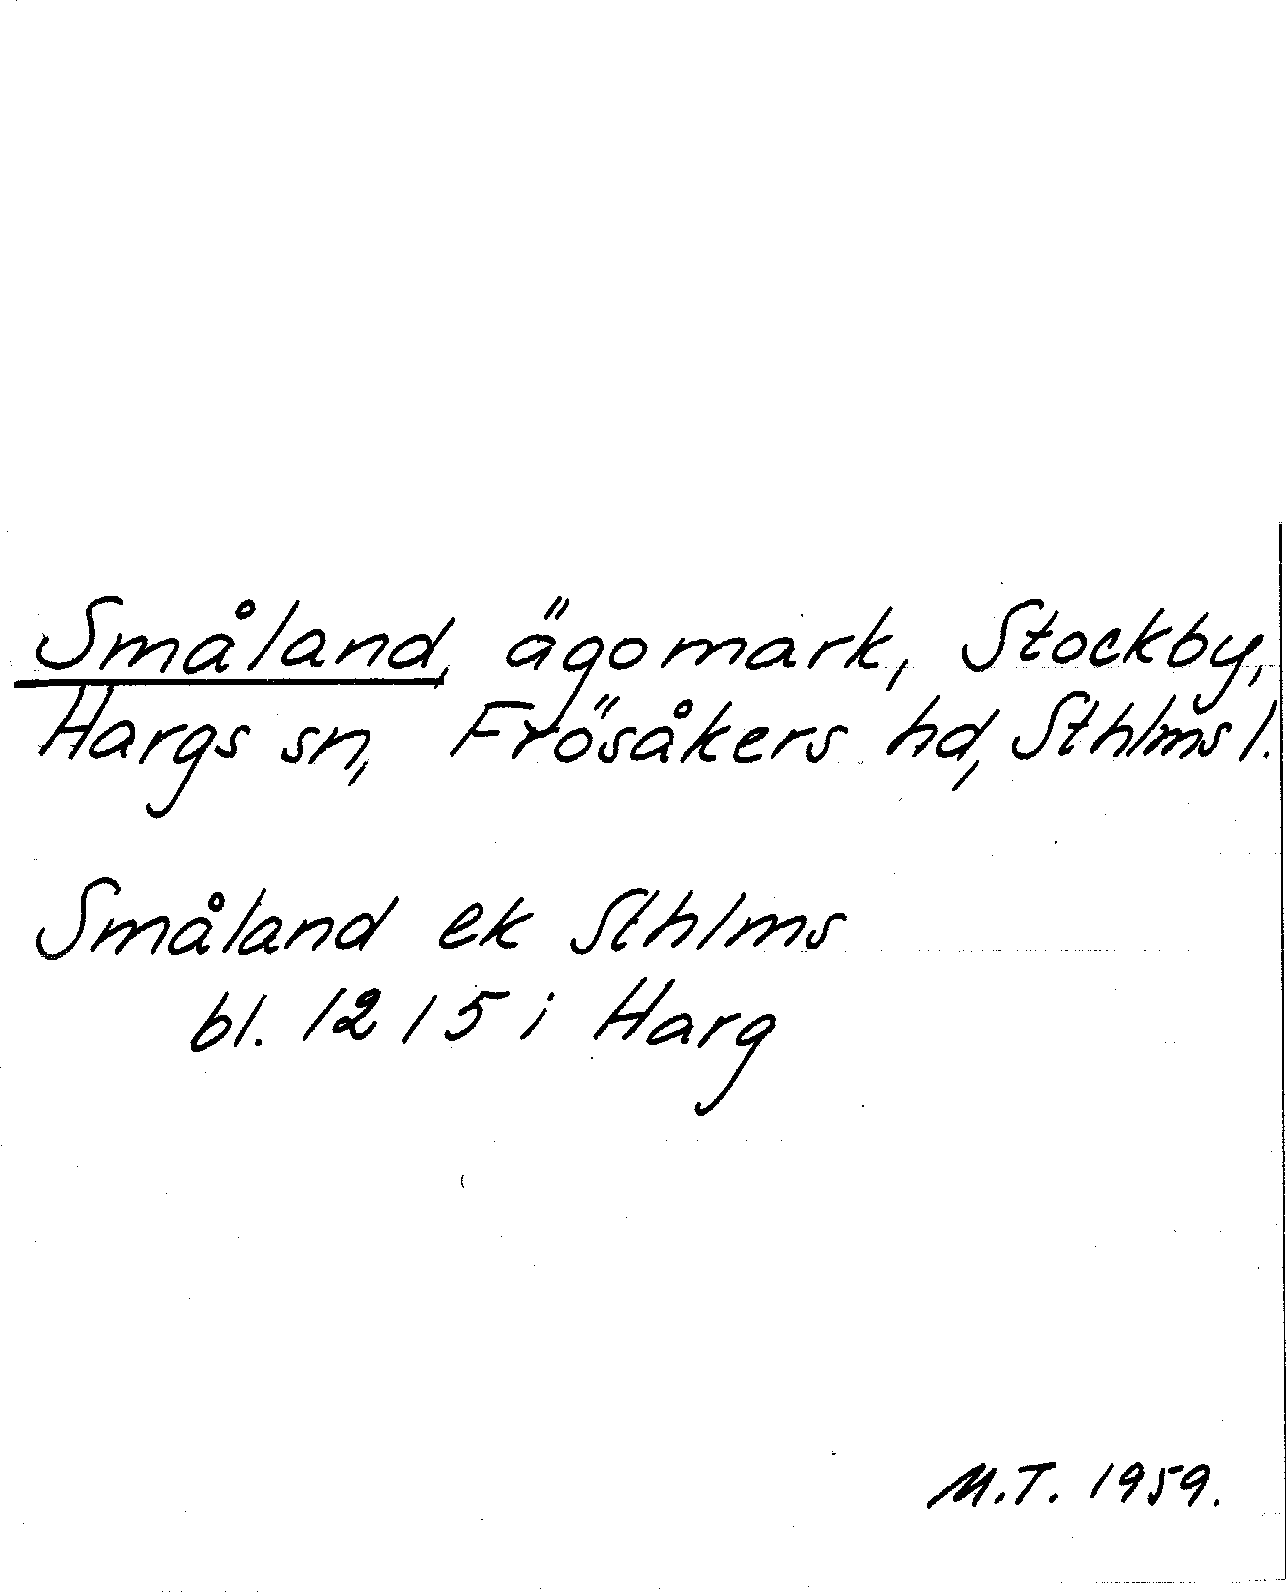 Småland, ägomark, Stockby,
Hargs sn, Frösåkers hd, Sthlms l.
Småland ek Sthlms
bl. 12 15 i Harg
M.T. 1959.